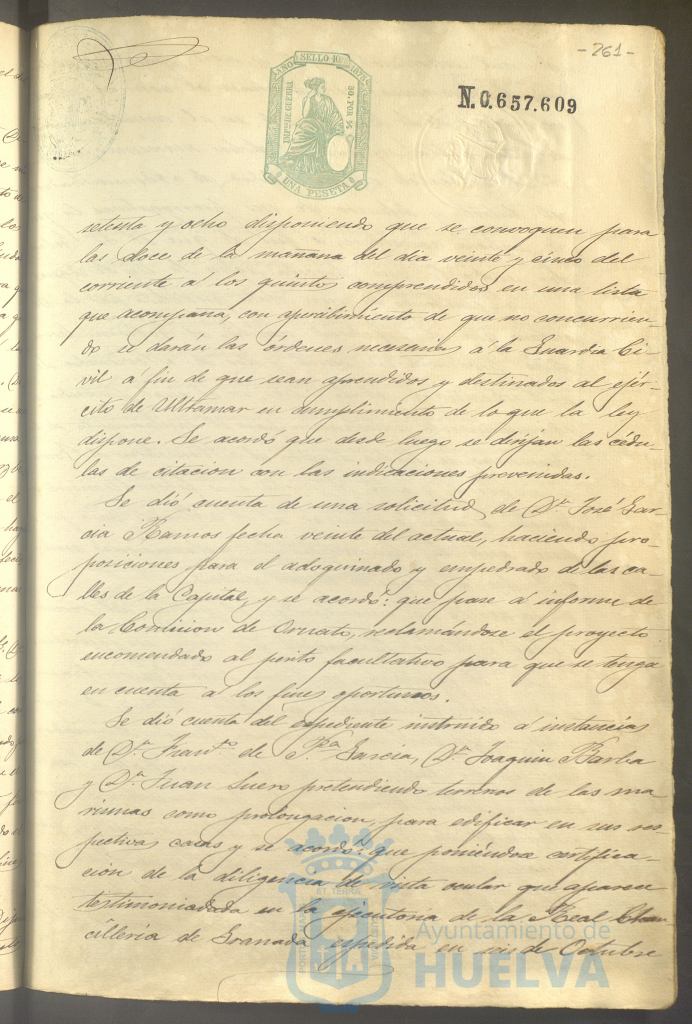 - 261 -
AÑO SELLO 10º 1878
IMPTO DE GUERRA
50 POR %
UNA PESETA
N. 0.657.609
setenta y ocho disponiendo que se convoquen para
las doce de la mañana del dia veinte y cinco del
corriente á los quintos comprendidos en una lista
que acompaña, con apercibimiento de que no concurrien-
do se darán las órdenes necesarias á la Guardia Ci-
vil á fin de que sean aprendidos y destinados al ejér-
cito de Ultramar en cumplimiento de lo que la ley
dispone. Se acordó que desde luego se dirijan las cédu-
las de citacion con las indicaciones prevenidas.
Se dió cuenta de una solicitud de Dn. José Gar-
cia Ramos fecha veinte del actual, haciendo pro-
posiciones para el adoquinado y empedrado de las ca-
lles de la Capital, y se acordó: que pase á informe de
la Comision de Ornato, reclamándose el proyecto
encomendado al perito facultativo para que se tenga
en cuenta a los fines oportunos.
Se dió cuenta del expediente instruido á instancias
de Dn. Franco. de P.a Garcia, Dn. Joaquin Barba
y Dn. Juan Suero pretendiendo terrenos de las ma
rismas como prolongacion, para edificar en sus res-
pectivas casas y se acordó: que poniéndose certifica-
cion de la diligencia de vista ocular que aparece
testimoniada en la ejecutoria de la Real Chan
cilleria de Granada espedida en seis de Octubre
Ayuntamiento de
HUELVA